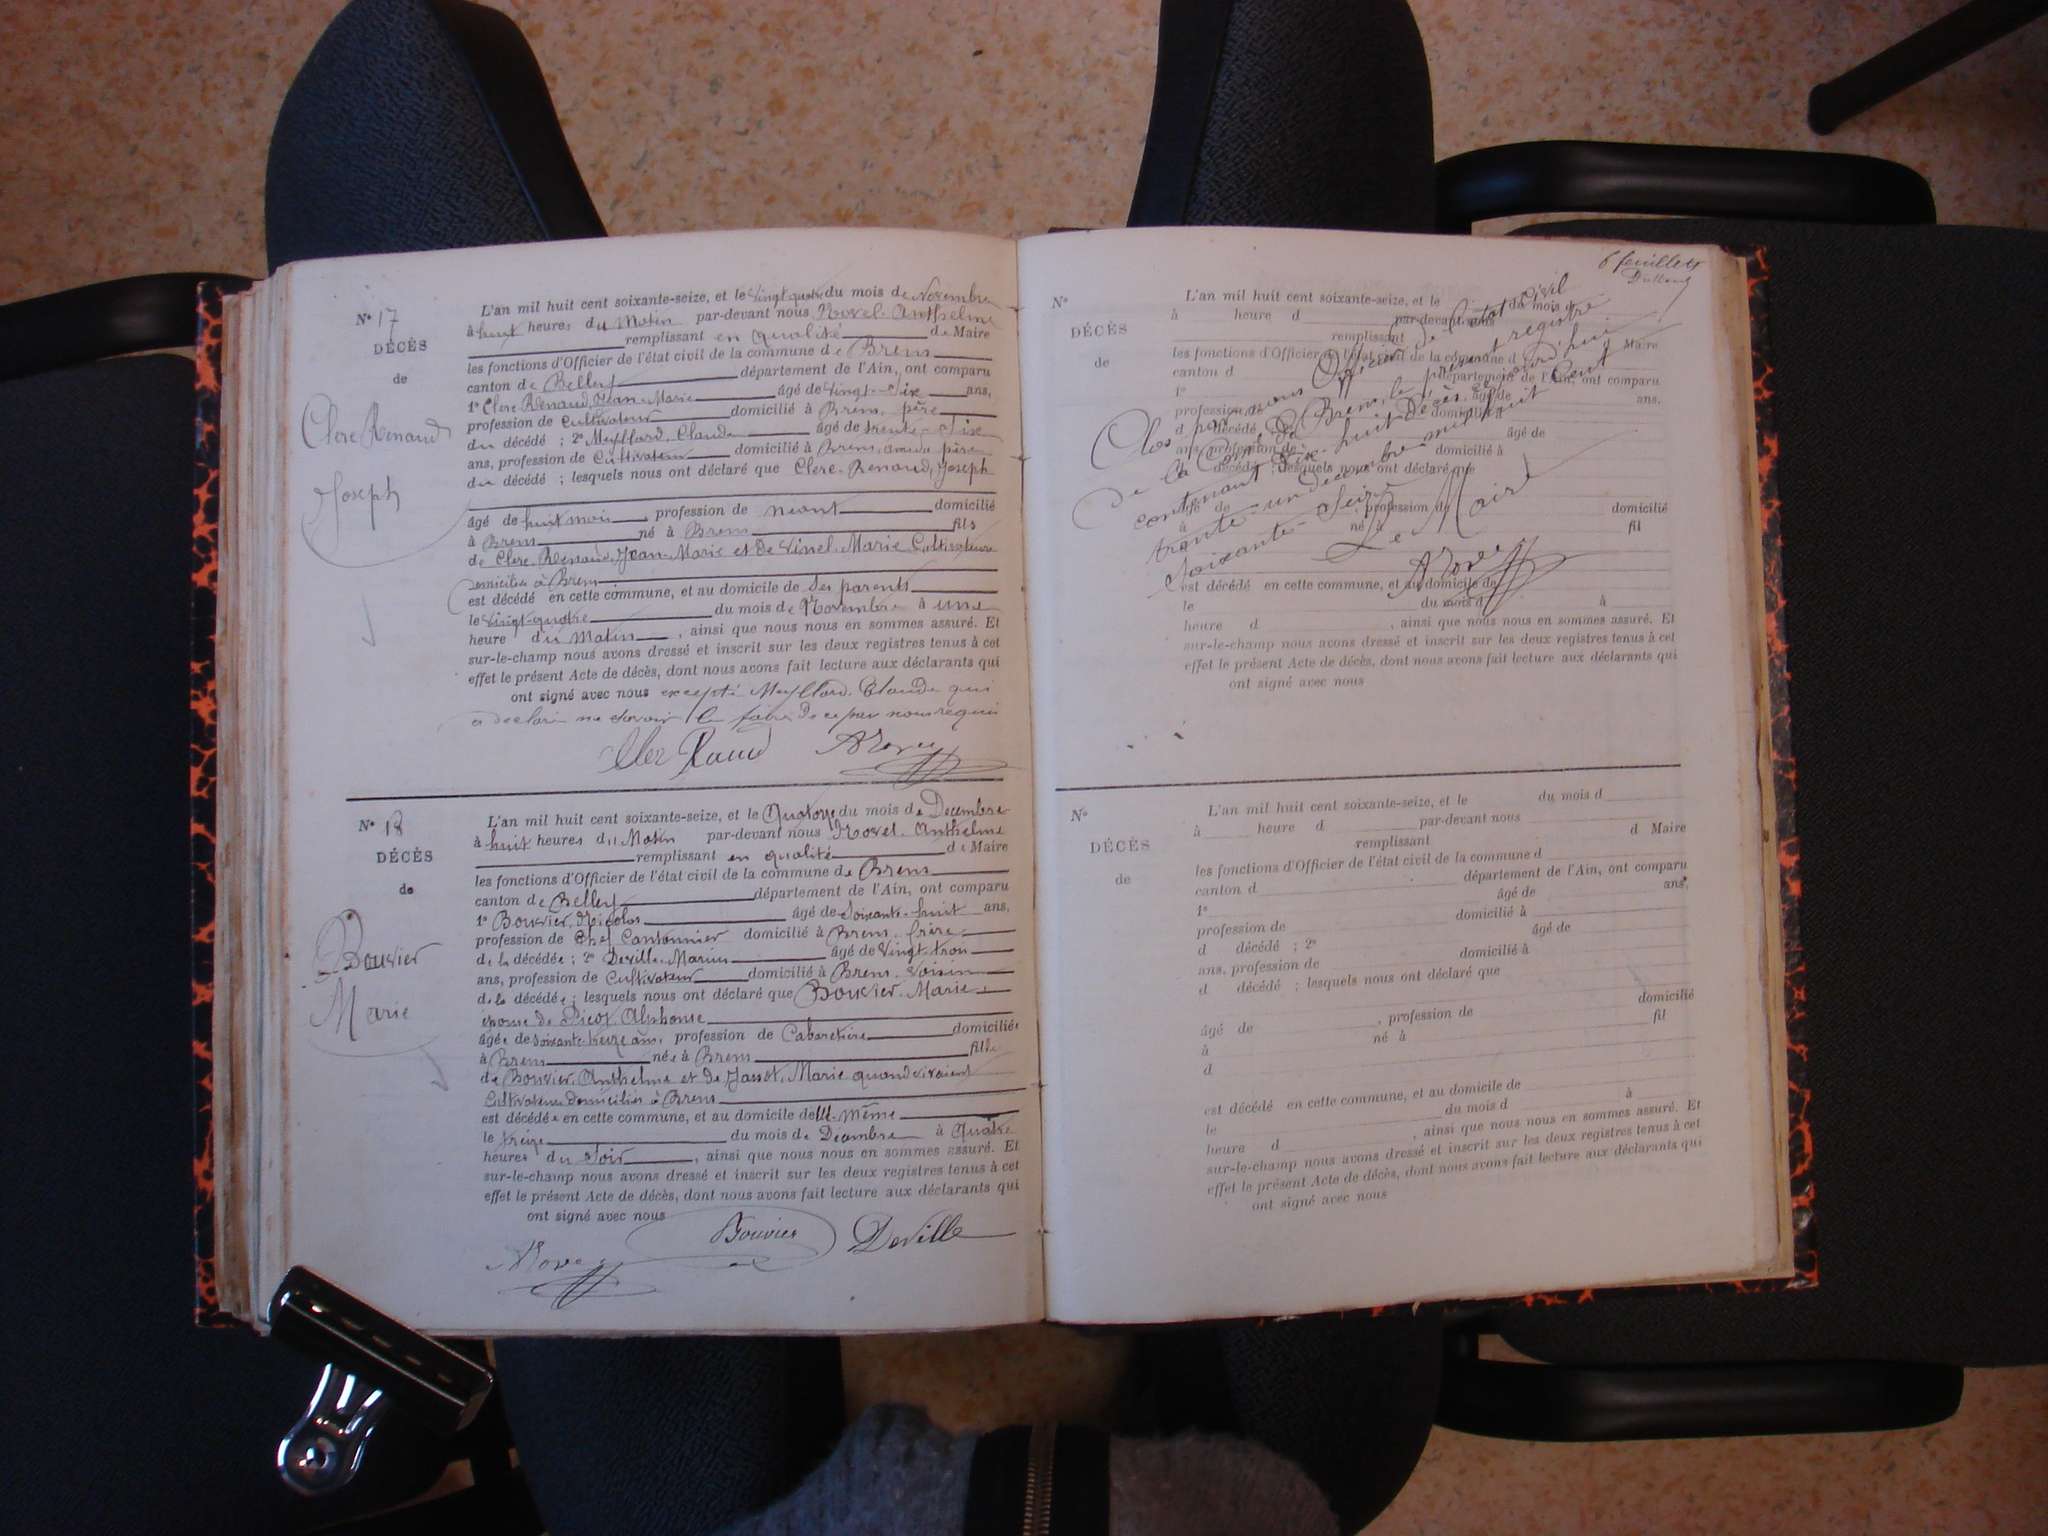 N° 17
DÉCÈS
de
Clerc Renaud
Joseph
L'an mil huit cent soixante-seize, et le vingt quatre du mois de Novembre
à huit heures du Matin par-devant nous Novel Anthelme
remplissant en qualité de Maire
les fonctions d'Officier de l'état civil de la commune de Brens
canton de Belley département de l'Ain, ont comparu
1° Clerc Renaud, Jean-Marie âgé de vingt-six ans,
profession de cultivateur domicilié à Brens, père
du décédé ; 2° Meyllard, Claude âgé de trente-six
ans, profession de Cultivateur domicilié à Brens, père
du décédé ; lesquels nous ont déclaré que Clerc-Renaud, Joseph
âgé de huit mois, profession de néant domicilié
à Brens né à Brens fils
de Clerc-Renaud, Jean-Marie et de Vinel, Marie Cultivateurs
domiciliés à Brens
est décédé en cette commune, et au domicile de ses parents
le vingt-quatre du mois de Novembre à une
heure du Matin, ainsi que nous nous en sommes assuré. Et
sur-le-champ nous avons dressé et inscrit sur les deux registres tenus à cet
effet le présent Acte de décès, dont nous avons fait lecture aux déclarants qui
ont signé avec nous excepté Meyllard, Claude qui
a déclaré ne savoir le faire de ce par nous requis
ANovel
N° 18
DÉCÈS
de
Bouvier
Marie
L'an mil huit cent soixante-seize, et le Quatorze du mois de Décembre
à huit heures du Matin par-devant nous Novel Anthelme
remplissant en qualité de Maire
les fonctions d'Officier de l'état civil de la commune de Brens
canton de Belley département de l'Ain, ont comparu
1° Bouvier, Nicolas âgé de soixante-huit ans,
profession de Chef Cantonnier domicilié à Brens, frère
de la décédée ; 2° Deville, Marius âgé de vingt-trois
ans, profession de Cultivateur domicilié à Brens, voisin
de la décédée ; lesquels nous ont déclaré que Bouvier, Marie
épouse de Picot, Alphonse
âgée de soixante-treize ans, profession de Cabaretière domiciliée
à Brens née à Brens fille
de Bouvier, Anthelme et de Marie quand vivaient
Cultivateurs domiciliés à Brens
est décédée en cette commune, et au domicile de même
le treize du mois de Décembre à Quatre
heures du soir, ainsi que nous nous en sommes assuré. Et
sur-le-champ nous avons dressé et inscrit sur les deux registres tenus à cet
effet le présent Acte de décès, dont nous avons fait lecture aux déclarants qui
ont signé avec nous
Bouvier Deville
ANovel
6 feuillets
N°
DÉCÈS
de
L'an mil huit cent soixante-seize, et le du mois d
à heure d par-devant nous
remplissant d Maire
les fonctions d'Officier de l'état civil de la commune d
canton d département de l'Ain, ont comparu
1° âgé de ans,
profession de domicilié à
d décédé ; 2° âgé de
ans, profession de domicilié à
d décédé ; lesquels nous ont déclaré que
âgé de , profession de domicilié
à né à fil
est décédé en cette commune, et au domicile de
le du mois d à
heure d , ainsi que nous nous en sommes assuré. Et
sur-le-champ nous avons dressé et inscrit sur les deux registres tenus à cet
effet le présent Acte de décès, dont nous avons fait lecture aux déclarants qui
ont signé avec nous
Clos par nous Officier de l'état Civil
de la Com de Brens, le présent registre
contenant dix-huit Décès, aujourd'hui
trente-un décembre mil huit cent
soixante-seize
Le Maire
ANovel
N°
DÉCÈS
de
L'an mil huit cent soixante-seize, et le du mois d
à heure d par-devant nous
remplissant d Maire
les fonctions d'Officier de l'état civil de la commune d
canton d département de l'Ain, ont comparu
1° âgé de ans,
profession de domicilié à
d décédé ; 2° âgé de
ans, profession de domicilié à
d décédé ; lesquels nous ont déclaré que
âgé de , profession de domicilié
à né à fil
d
est décédé en cette commune, et au domicile de
le du mois d à
heure d , ainsi que nous nous en sommes assuré. Et
sur-le-champ nous avons dressé et inscrit sur les deux registres tenus à cet
effet le présent Acte de décès, dont nous avons fait lecture aux déclarants qui
ont signé avec nous